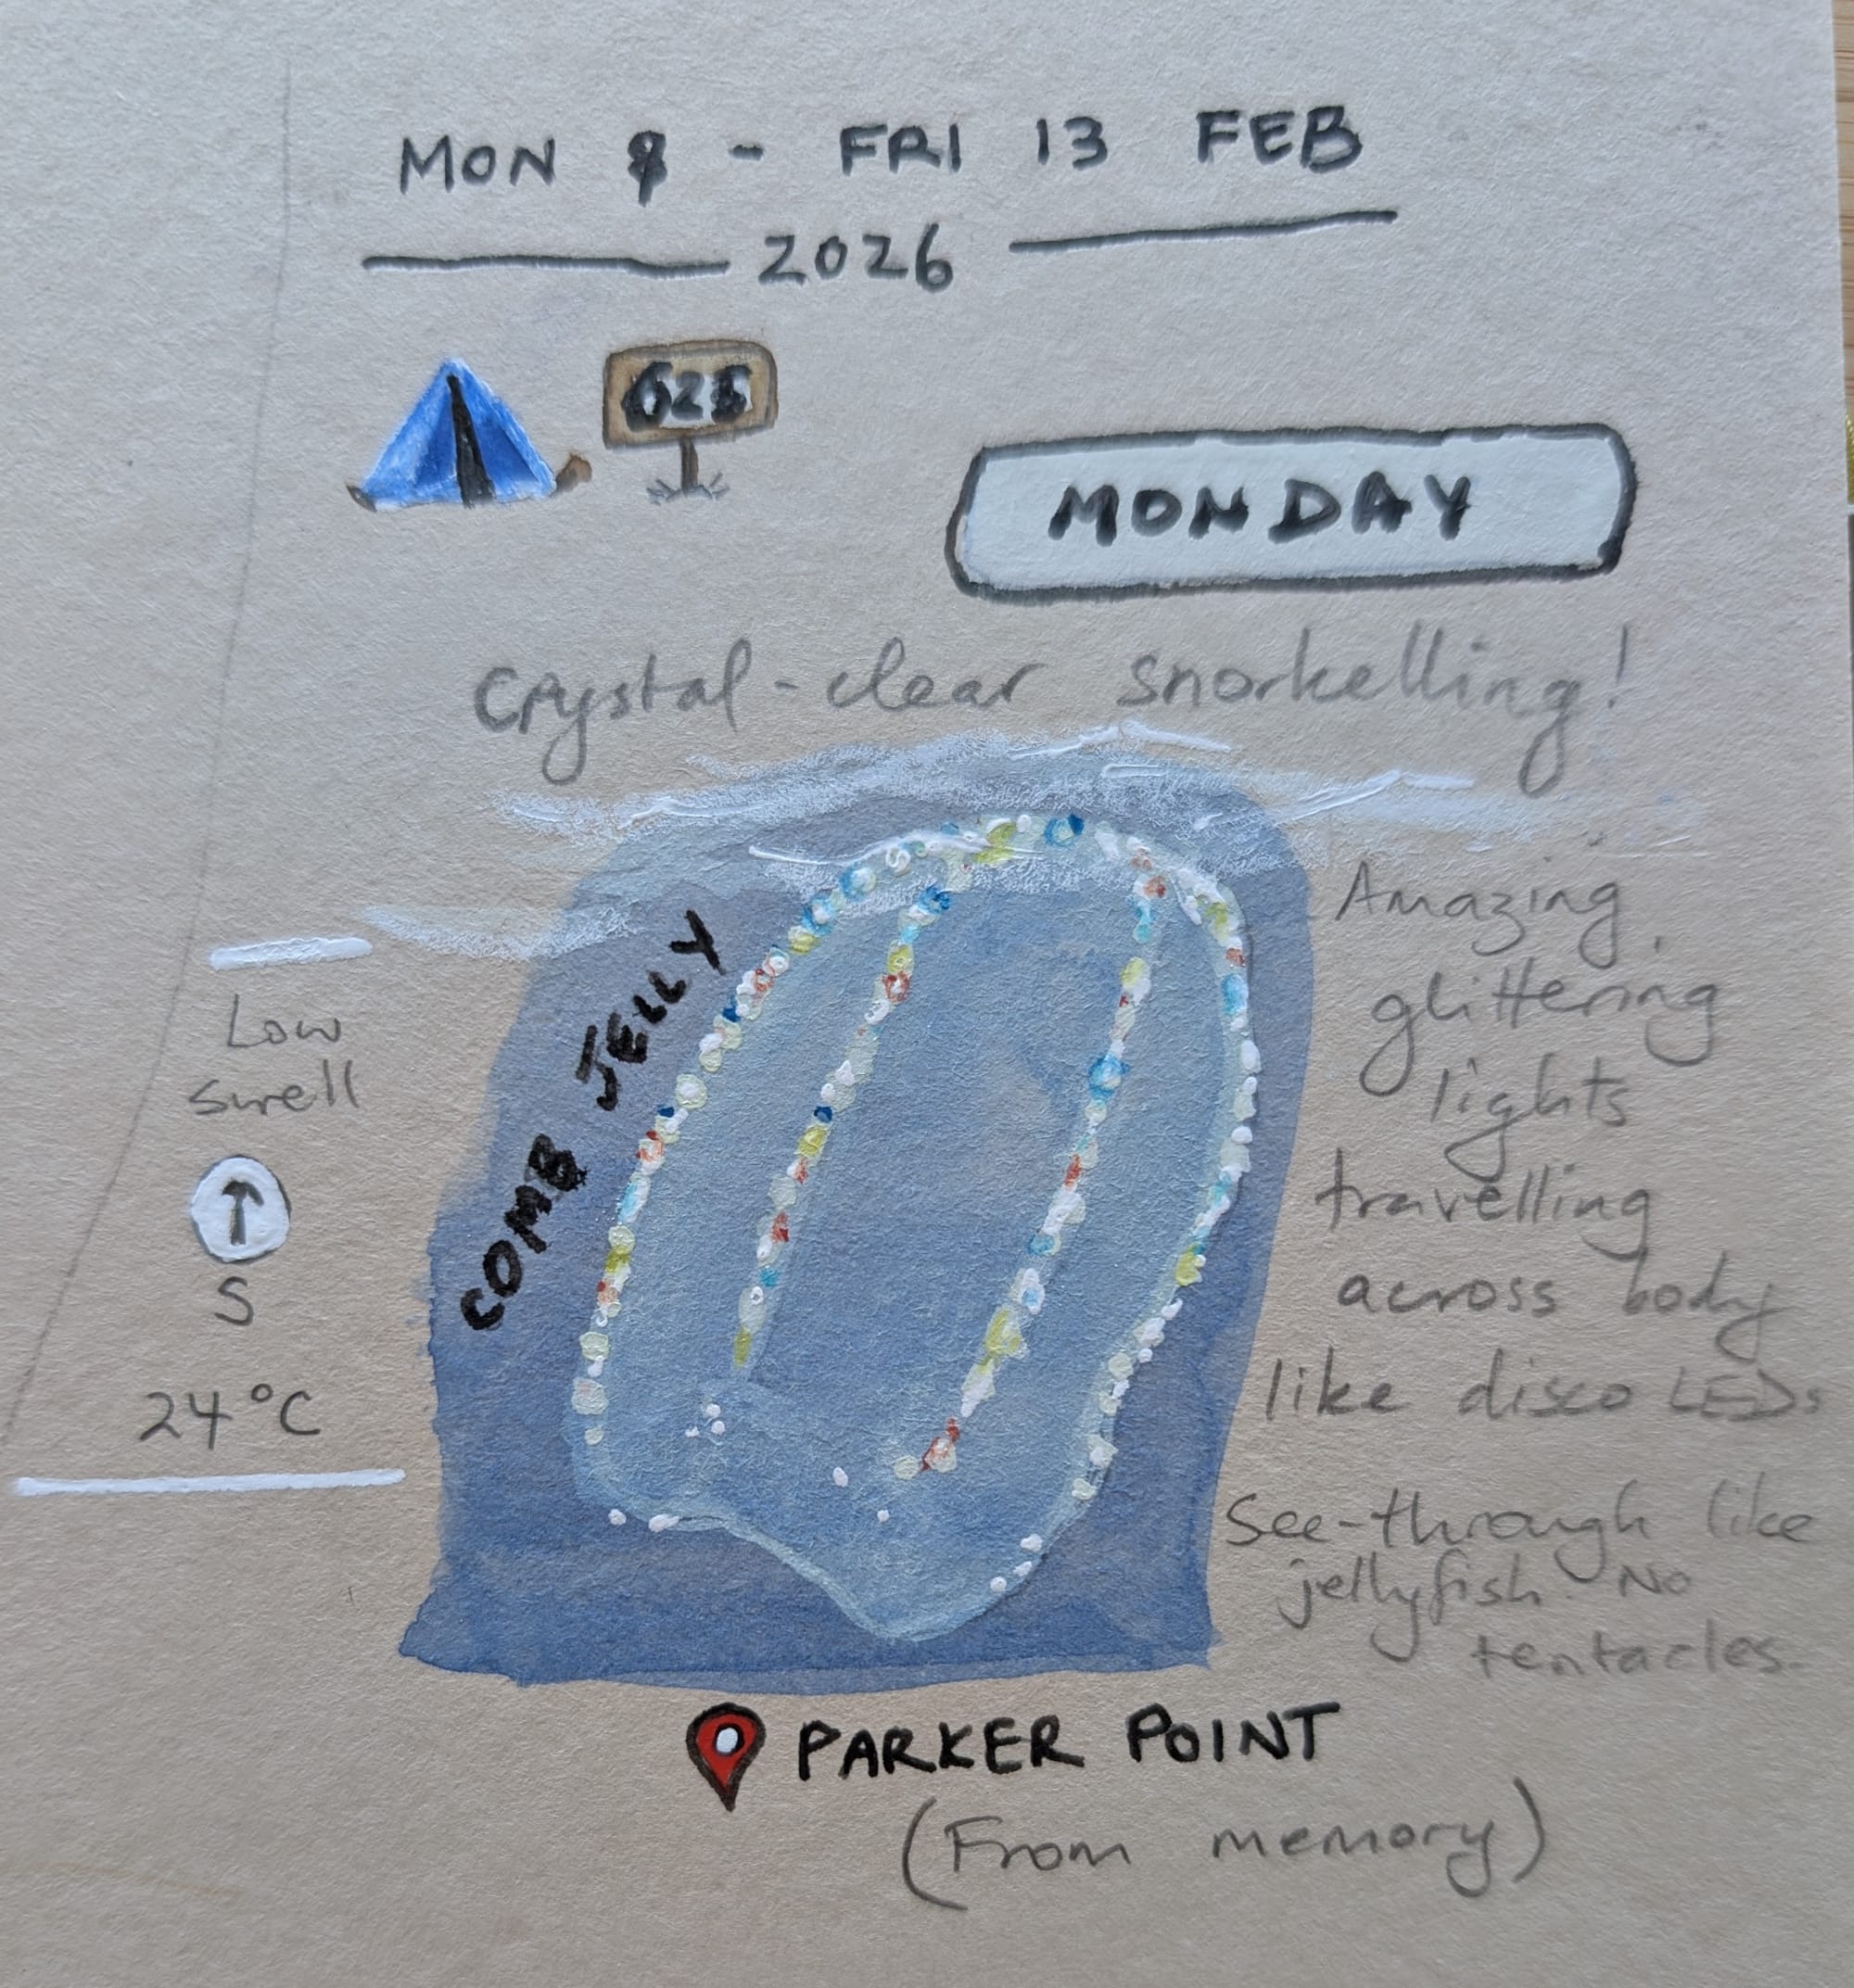 MON 9 - FRI 13 FEB
2026
MONDAY
Crystal-clear snorkelling!
COMB JELLY
Low
swell
↑
S
24°C
Amazing
glittering
lights
travelling
across body
like disco LEDs
See-through like
jellyfish. No
tentacles.
PARKER POINT
(From memory)